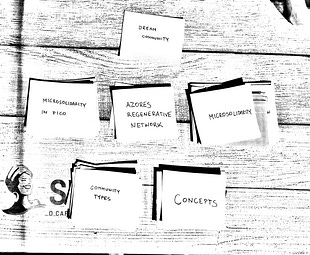 DREAM
COMMUNITY
MICROSOLIDARITY
IN PICO
AZORES
REGENERATIVE
NETWORK
MICROSOLIDARITY
COMMUNITY
TYPES
CONCEPTS